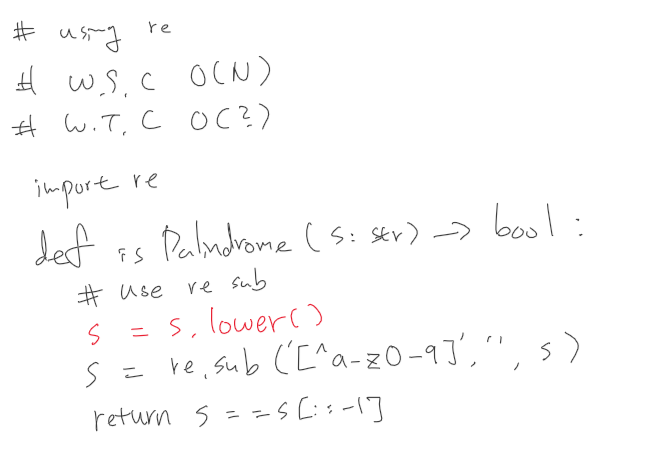 # using re
# W.S.C O(N)
# W.T.C O(?)
import re
def isPalindrome(s: str) -> bool:
# use re sub
s = s.lower()
s = re.sub('[^a-z0-9]', '', s)
return s == s[::-1]